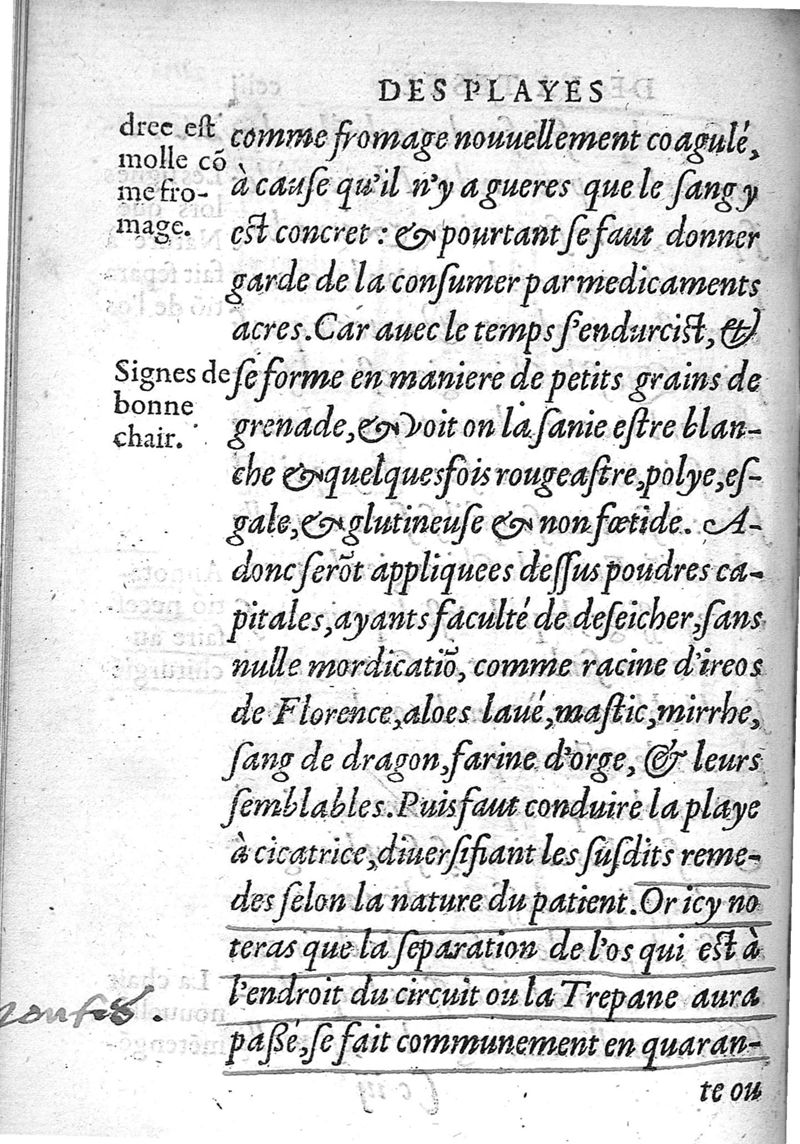 DES PLAYES
dree est
molle cõ
me fro-
mage.
comme fromage nouuellement coagulé,
à cause qu'il n'y a gueres que le sang y
est concret : & pourtant se faut donner
garde de la consumer par medicaments
acres. Car auec le temps s'endurcist, &
Signes de
bonne
chair.
se forme en maniere de petits grains de
grenade, & voit on la sanie estre blan-
che & quelquesfois rougeastre, polye, es-
gale, & glutineuse & non fœtide. A-
donc serõt appliquees dessus poudres ca-
pitales, ayants faculté de deseicher, sans
nulle mordicatiõ, comme racine d'ireos
de Florence, aloes laué, mastic, mirrhe,
sang de dragon, farine d'orge, & leurs
semblables. Puis faut conduire la playe
à cicatrice, diuersifiant les susdits reme-
des selon la nature du patient. Or icy no
teras que la separation de l'os qui est à
l'endroit du circuit ou la Trepane aura
paßé, se fait communement en quaran-
te ou